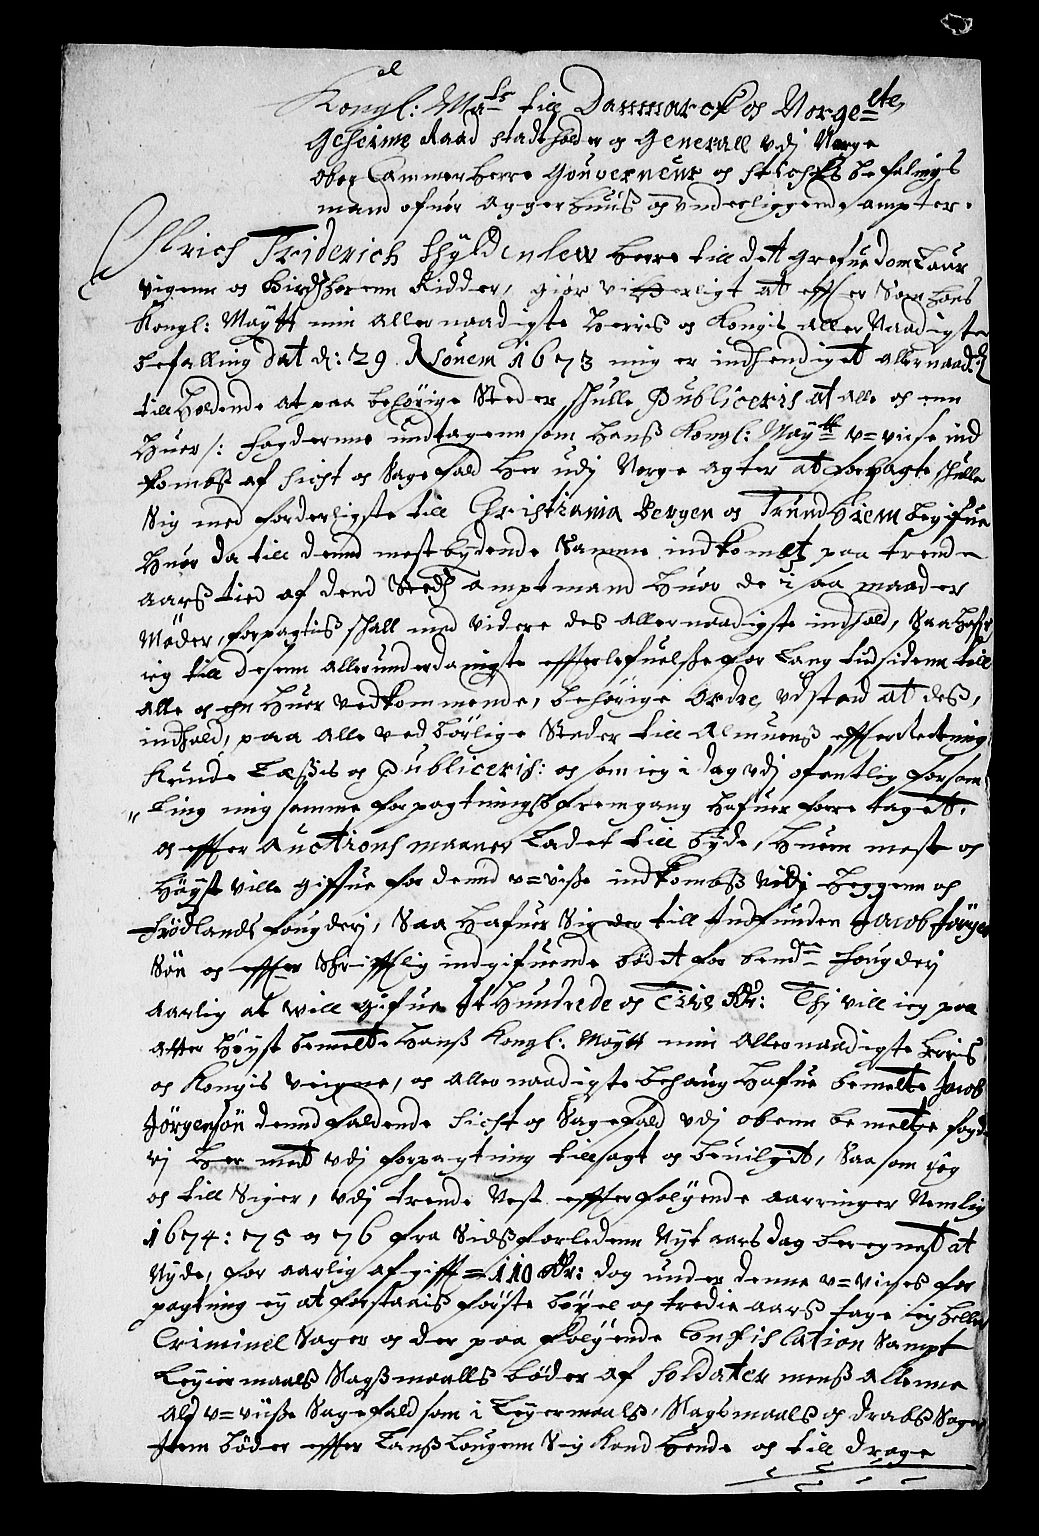 Kongl: Ma:ts till Danmarck og Norge etc
Geheime Raad Stadtholder og Generall udj Norge
Ober Cammerherre Gouverneur og Stichts befalings
mand ofuer Aggerhuus og underliggende ampter.
Ulrich Friderich Gyldenlew herre till det grefuedom Laur
vigenn og Ridder, giør vitterligt at effter som hans
Kongl: Maytt min allernaadigste Herris og Kongis aller Naadigste
befalling dat d: 29 Novem 1673 mig er indhendiget allernaad:
till holdende at paa behörige Steder skulle Publiceris at alle og enn
huer /: fogderne undtagenn som hans Kongl: Maytt u=visse ind
kombs af Sicht og Sagefald her udj Norge agter at forpagte, skulle
Sig med forderligste till Christiania Bergen og Trundhiem begifue
huor da till dend mestbydende Samme indkomst paa trende
aars tied af dend Steds amptmand huor de i saa maader
Møder, forpagtis skall med videre des allernaadigste indhold, Saa hafr
ieg till desenn allerunderdanigste effterlefuelse for lang tid sidenn till
alle og en huer vedkommende, behörige ordre udsted at des,
indhold, paa alle vedbørlige Steder till Almuens effterretning
kunde læsis og Publiceris: og som ieg i dag udj ofentlig forsom
ling mig samme forpagtnings fremgang hafuer forre taget.
og effter auctions maaner Ladet till byde, huem mest og
høyst ville giffue for dend u=visse indkombs vidj Heggenn og
Frödlands fougderj, Saa hafuer Sig der till Indfunden Jacob Jörgen
Sön og effter Skrifftlig indgifuende bødet for bemd:te fougderj
aarlig at will gifue It Hundrede og Tiie Rdr: Thj vill ieg paa
atter höyst bemelte hans Kongl: Maytt min Allernaadigste herris
og Kongis veigne, og allernaadigste behaug hafue bemelte Jacob
Jörgensön dend faldende Sicht og Sagefald udj obenn bemelte fogde
rj her med udj forpagtning tillsagt og beuilgit, Saa som ieg
og till Siger, udj trende Nest effterfølgende aarringer Nemlig
1674: 75 og 76 fra Sidstforledenn Nyt aars dag beregnet at
Nyde, for aarlig afgifft = 110 Rdr: dog under denne u=visses for
pagtning ey at forstaais første bøxel og tredie aars tage ieg heller
Criminel Sager og der paa følgende Confiscation Sampt
Leyiermaals Slagsmaalls bøder af Soldater mens allenne
ald u=visse Sagefald som i Leyermaals, Slagsmaals og drabs Sager
Item bøder effter lanslougenn Sig kand hende og till drage